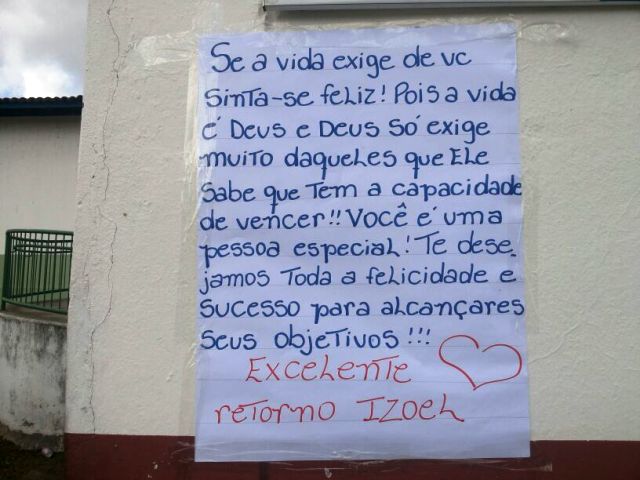 Se a vida exige de vc
Sinta-se feliz! Pois a vida
é Deus e Deus Só exige
muito daqueles que Ele
Sabe que tem a capacidade
de vencer!! Você é uma
pessoa especial! Te dese-
jamos Toda a felicidade e
sucesso para alcançares
seus objetivos!!!
Excelente
retorno Izoel